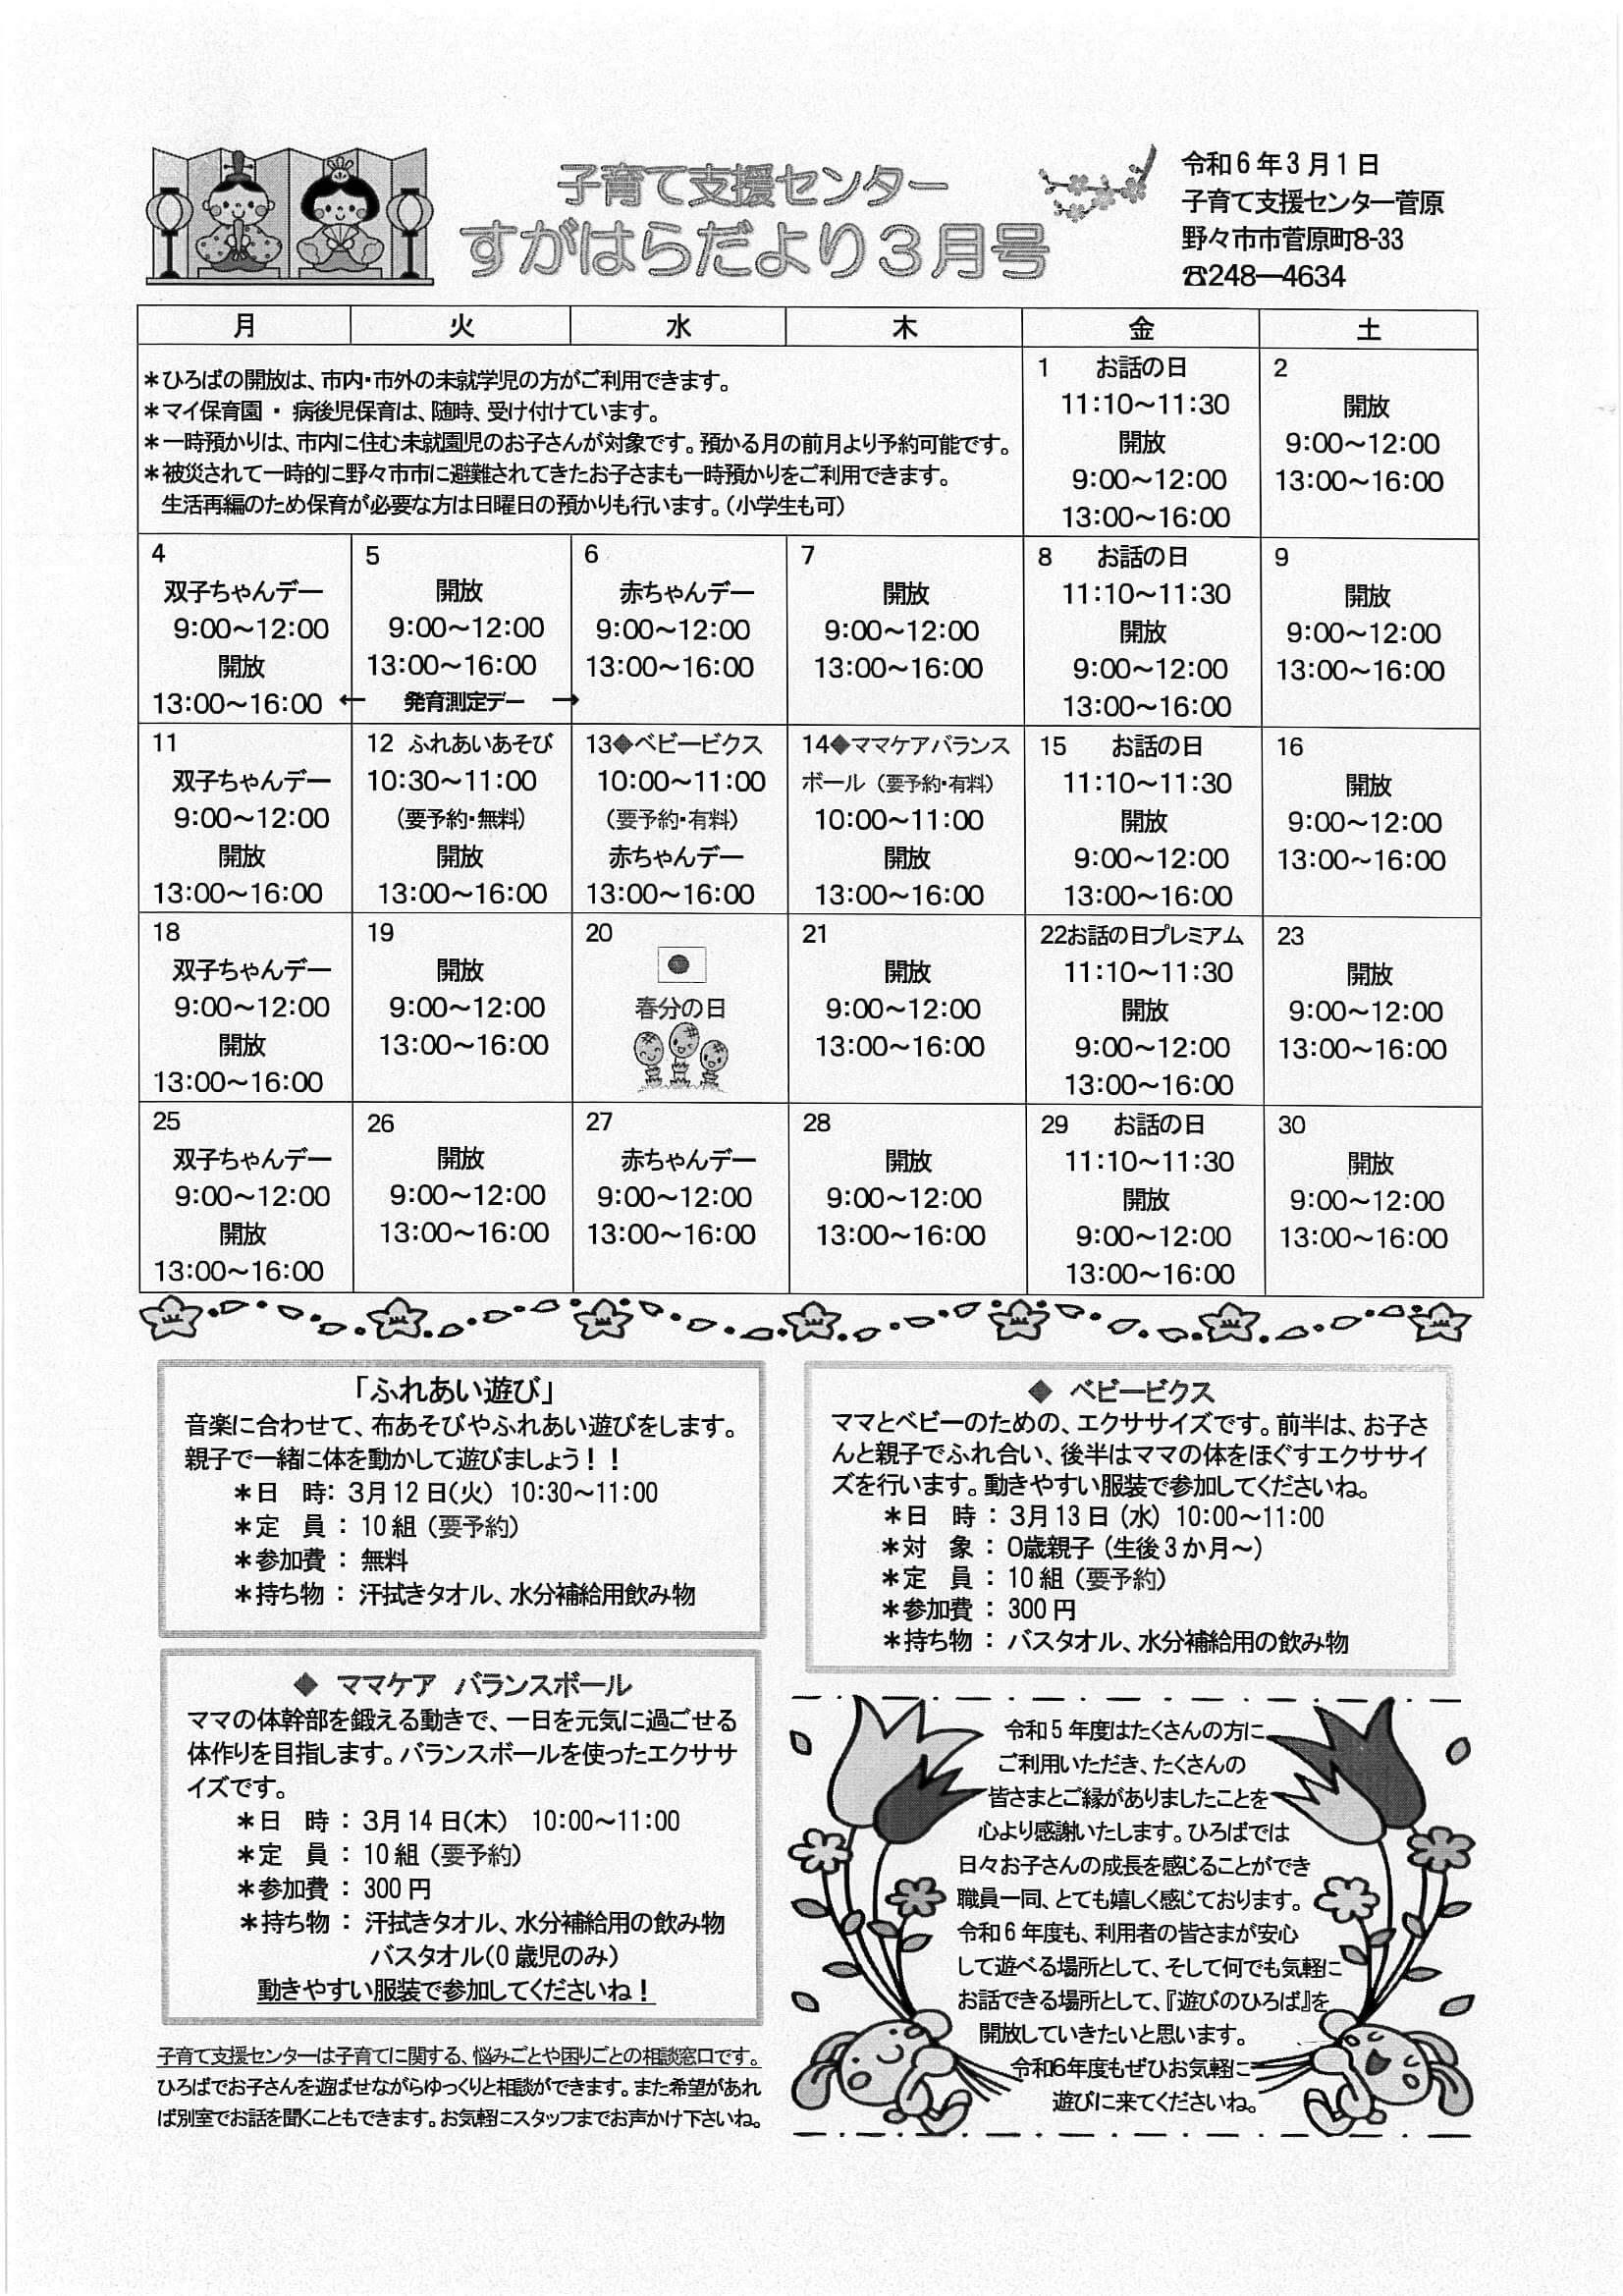 子育て支援センター
すがはらだより3月号
令和6年3月1日
子育て支援センター菅原
野々市市菅原町8-33
☎248―4634
月 火 水 木 金 土
＊ひろばの開放は、市内・市外の未就学児の方がご利用できます。
＊マイ保育園 ・ 病後児保育は、随時、受け付けています。
＊一時預かりは、市内に住む未就園児のお子さんが対象です。預かる月の前月より予約可能です。
＊被災されて一時的に野々市市に避難されてきたお子さまも一時預かりをご利用できます。
生活再編のため保育が必要な方は日曜日の預かりも行います。（小学生も可）
1 お話の日
11:10～11:30
開放
9:00～12:00
13:00～16:00
2
開放
9:00～12:00
13:00～16:00
4
双子ちゃんデー
9:00～12:00
開放
13:00～16:00
5
開放
9:00～12:00
13:00～16:00
← 発育測定デー →
6
赤ちゃんデー
9:00～12:00
13:00～16:00
7
開放
9:00～12:00
13:00～16:00
8 お話の日
11:10～11:30
開放
9:00～12:00
13:00～16:00
9
開放
9:00～12:00
13:00～16:00
11
双子ちゃんデー
9:00～12:00
開放
13:00～16:00
12 ふれあいあそび
10:30～11:00
（要予約・無料）
開放
13:00～16:00
13◆ベビービクス
10:00～11:00
（要予約・有料）
赤ちゃんデー
13:00～16:00
14◆ママケアバランス
ボール（要予約・有料）
10:00～11:00
開放
13:00～16:00
15 お話の日
11:10～11:30
開放
9:00～12:00
13:00～16:00
16
開放
9:00～12:00
13:00～16:00
18
双子ちゃんデー
9:00～12:00
開放
13:00～16:00
19
開放
9:00～12:00
13:00～16:00
20
春分の日
21
開放
9:00～12:00
13:00～16:00
22お話の日プレミアム
11:10～11:30
開放
9:00～12:00
13:00～16:00
23
開放
9:00～12:00
13:00～16:00
25
双子ちゃんデー
9:00～12:00
開放
13:00～16:00
26
開放
9:00～12:00
13:00～16:00
27
赤ちゃんデー
9:00～12:00
13:00～16:00
28
開放
9:00～12:00
13:00～16:00
29 お話の日
11:10～11:30
開放
9:00～12:00
13:00～16:00
30
開放
9:00～12:00
13:00～16:00
「ふれあい遊び」
音楽に合わせて、布あそびやふれあい遊びをします。
親子で一緒に体を動かして遊びましょう！！
＊日 時： 3月12日（火） 10:30～11:00
＊定 員 ： 10組（要予約）
＊参加費 ： 無料
＊持ち物 ： 汗拭きタオル、水分補給用飲み物
◆ ベビービクス
ママとベビーのための、エクササイズです。前半は、お子さ
んと親子でふれ合い、後半はママの体をほぐすエクササイ
ズを行います。動きやすい服装で参加してくださいね。
＊日 時 ： 3月13日（水） 10:00～11:00
＊対 象 ： 0歳親子（生後3か月～）
＊定 員 ： 10組（要予約）
＊参加費 ： 300円
＊持ち物 ： バスタオル、水分補給用の飲み物
◆ ママケア バランスボール
ママの体幹部を鍛える動きで、一日を元気に過ごせる
体作りを目指します。バランスボールを使ったエクササ
イズです。
＊日 時 ： 3月14日（木） 10:00～11:00
＊定 員 ： 10組（要予約）
＊参加費 ： 300円
＊持ち物 ： 汗拭きタオル、水分補給用の飲み物
バスタオル（0歳児のみ）
動きやすい服装で参加してくださいね！
子育て支援センターは子育てに関する、悩みごとや困りごとの相談窓口です。
ひろばでお子さんを遊ばせながらゆっくりと相談ができます。また希望があれ
ば別室でお話を聞くこともできます。お気軽にスタッフまでお声かけ下さいね。
令和5年度はたくさんの方に
ご利用いただき、たくさんの
皆さまとご縁がありましたことを
心より感謝いたします。ひろばでは
日々お子さんの成長を感じることができ
職員一同、とても嬉しく感じております。
令和6年度も、利用者の皆さまが安心
して遊べる場所として、そして何でも気軽に
お話できる場所として、『遊びのひろば』を
開放していきたいと思います。
令和6年度もぜひお気軽に
遊びに来てくださいね。